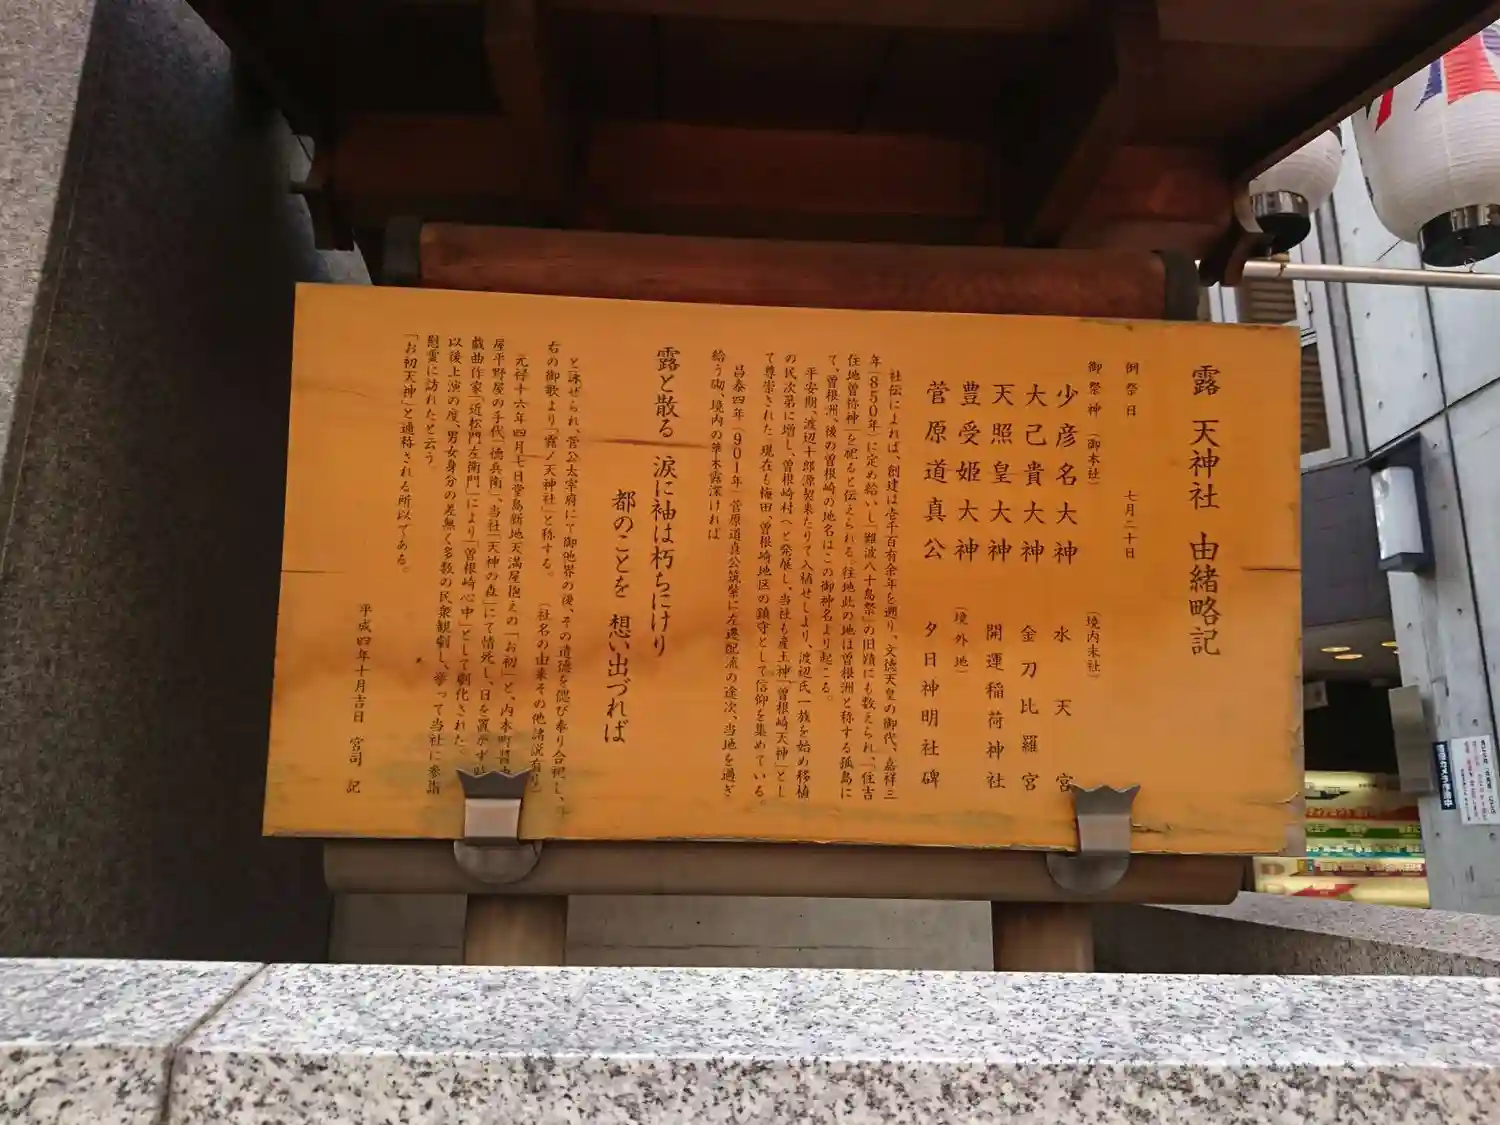 露 天神社 由緒略記
例祭日 七月二十日
御祭神（御本社）
（境内末社）
少彦名大神 水天宮
大己貴大神 金刀比羅宮
天照皇大神 開運稲荷神社
豊受姫大神（境外地）
菅原道真公 夕日神明社碑
社伝によれば、創建は壱千百有余年を遡り、文徳天皇の御代、嘉祥三
年（850年）に定め給いし「難波八十島祭」の旧蹟にも数えられ、「住吉
住地曽弥神」を祀ると伝えられる。往地此の地は曽根洲と称する孤島に
て、曽根洲、後の曽根崎の地名はこの御神名より起こる。
平安期、渡辺十郎源契来たりて入植せしより、渡辺氏一族を始め移植
の民次第に増し、曽根崎村へと発展し、当社も産土神「曽根崎天神」とし
て尊崇された。現在も梅田、曽根崎地区の鎮守として信仰を集めている。
昌泰四年（901年）菅原道真公筑紫に左遷配流の途次、当地を過ぎ
給う砌、境内の草木露深ければ
露と散る 涙に袖は朽ちにけり
都のことを 想い出づれば
と詠ぜられ、菅公太宰府にて御他界の後、その遺徳を偲び奉り合祀し、
右の御歌より「露ノ天神社」と称する。 （社名の由来その他諸説有り）
元禄十六年四月七日堂島新地天満屋抱えの「お初」と、内本町醤
屋平野屋の手代「徳兵衛」、当社「天神の森」にて情死し、日を置かず
戯曲作家「近松門左衛門」により「曽根崎心中」として劇化された。
以後上演の度、男女身分の差無く多数の民衆観劇し、挙って当社に参詣
慰霊に訪れたと云う。
「お初天神」と通称される所以である。
平成四年十月吉日 宮司 記
防犯カメラ作動中